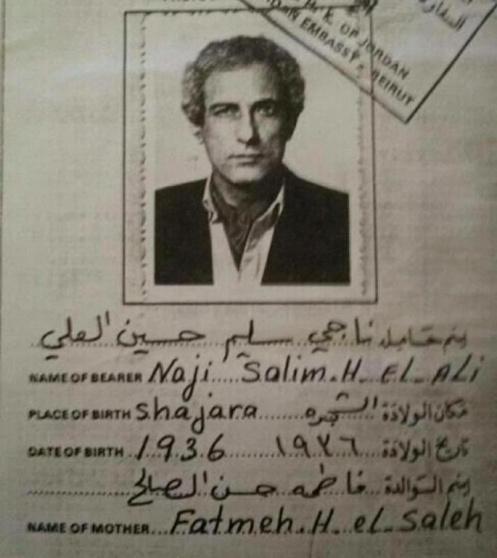 H. K. OF JORDAN
EMBASSY - BEIRUT
ناجي سليم حسين العلي
NAME OF BEARER Naji Salim H. EL ALi
PLACE OF BIRTH Shajara الشجره مكان الولادة
DATE OF BIRTH 1936 ١٩٣٦ تاريخ الولادة
إسم الوالدة فاطمه حسن الصالح
NAME OF MOTHER Fatmeh H. el Saleh